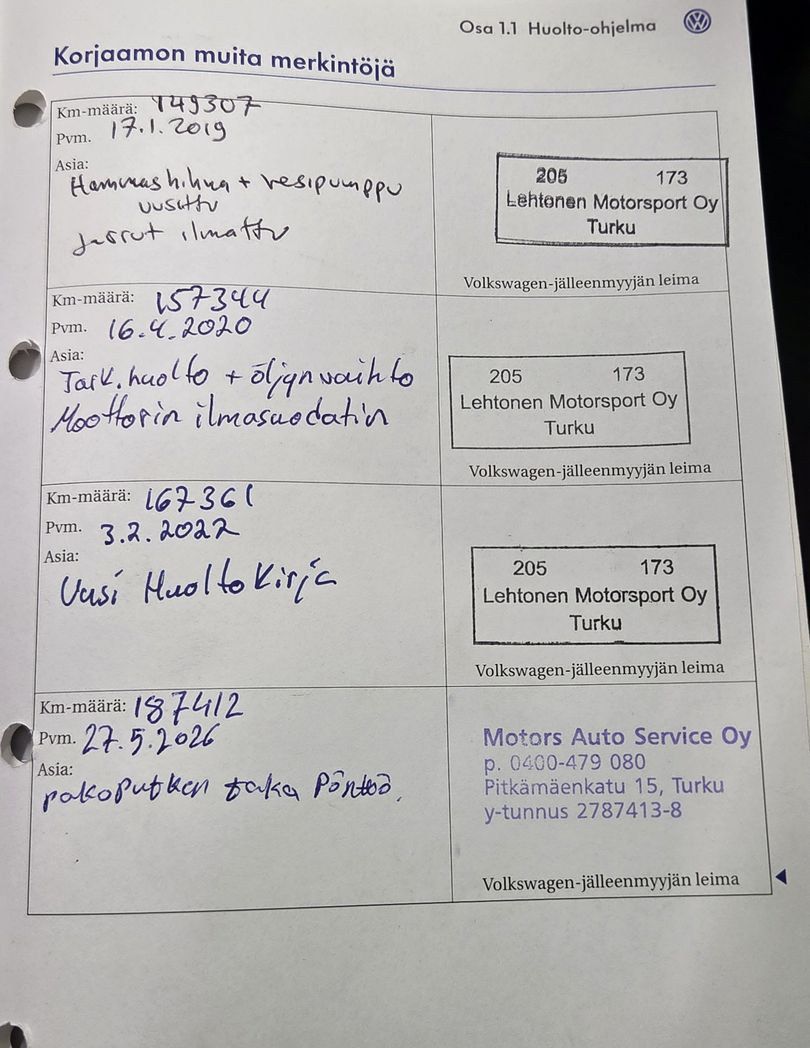 Osa 1.1 Huolto-ohjelma
Korjaamon muita merkintöjä
Km-määrä: 149307
Pvm. 17.1.2019
Asia:
Hammashihna + vesipumppu
uusittu
Jarrut ilmattu
205 173
Lehtonen Motorsport Oy
Turku
Volkswagen-jälleenmyyjän leima
Km-määrä: 157344
Pvm. 16.4.2020
Asia:
Tark.huolto + öljynvaihto
Moottorin ilmasuodatin
205 173
Lehtonen Motorsport Oy
Turku
Volkswagen-jälleenmyyjän leima
Km-määrä: 167361
Pvm. 3.2.2022
Asia:
Uusi Huoltokirja
205 173
Lehtonen Motorsport Oy
Turku
Volkswagen-jälleenmyyjän leima
Km-määrä: 187412
Pvm. 27.5.2026
Asia:
pakoputken taka Pönttö.
Motors Auto Service Oy
p. 0400-479 080
Pitkämäenkatu 15, Turku
y-tunnus 2787413-8
Volkswagen-jälleenmyyjän leima